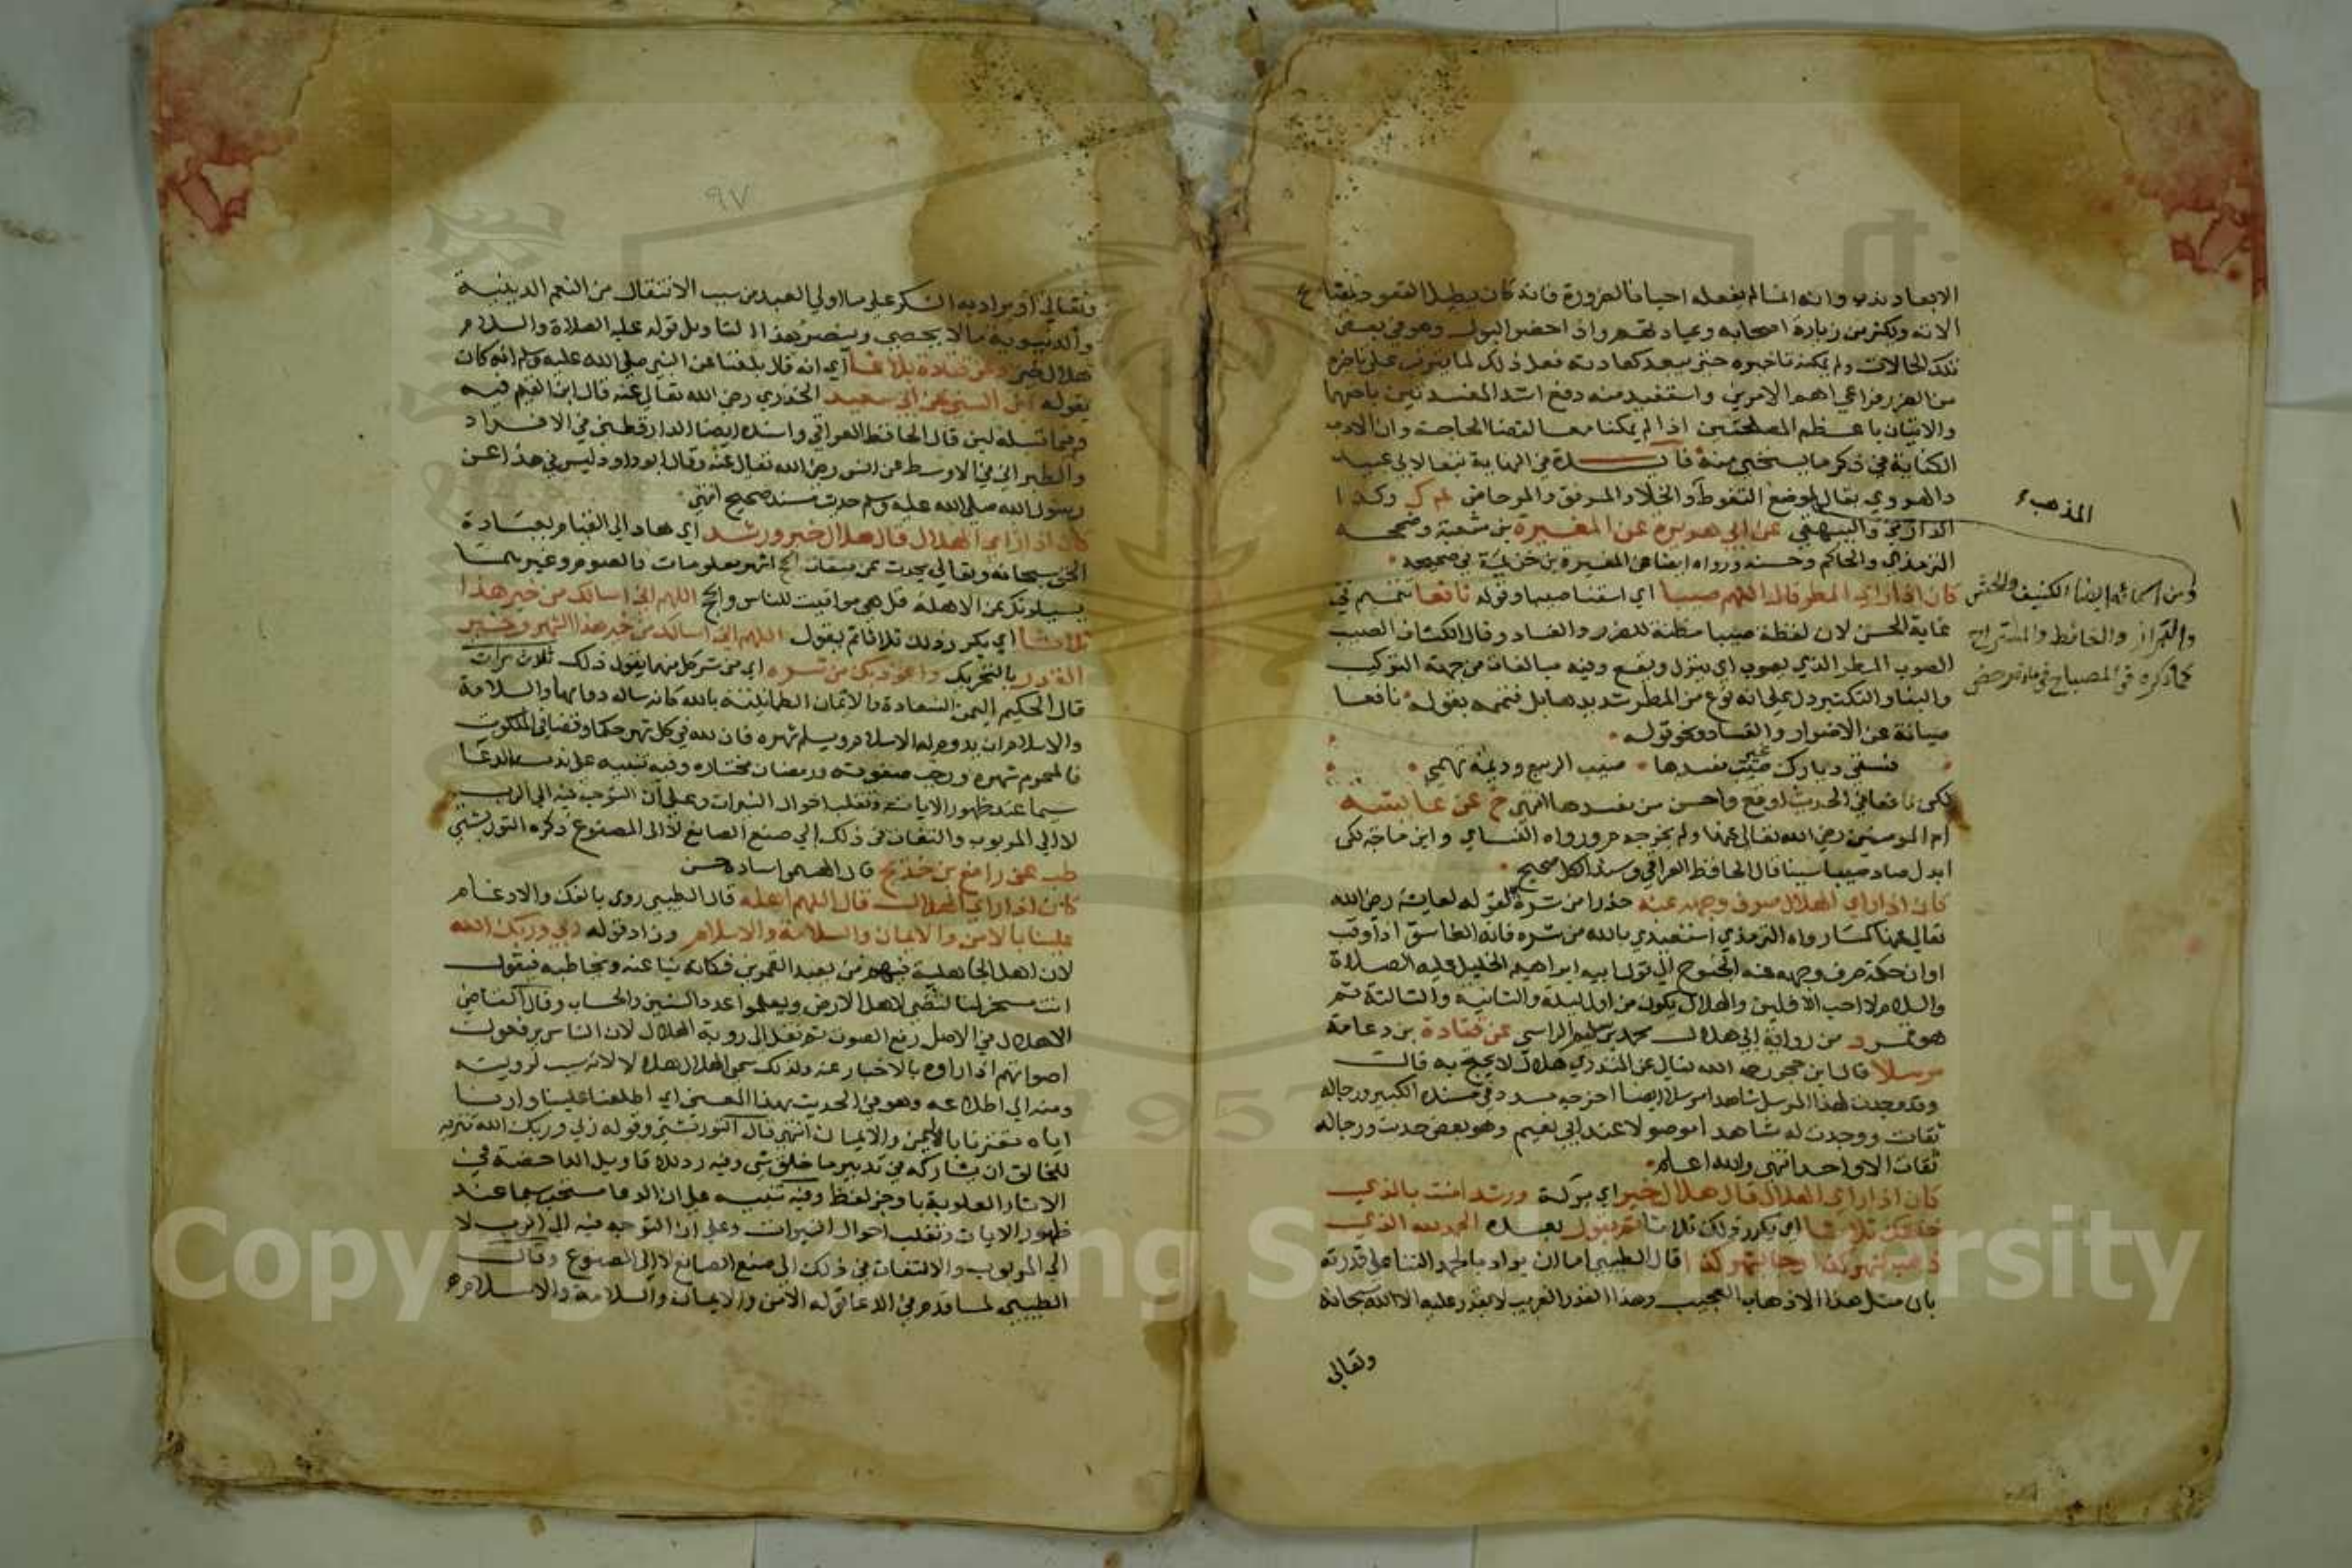 الابعاد ندب وانه انما لم يفعله احيانا لضرورة فانه كان يطيل القعود لمصالح
الامة ويكثر من زيارة اصحابه وعيادتهم واذا حضر البول وهو في بعض
تلك الحالات ولم يمكنه تاخيره حتى يبعد كعادته فعل ذلك لما يترتب على تاخره
من الضرر فراعى اهم الامرين واستفيد منه دفع اشد المفسدتين باخفهما
والاتيان باعظم المصلحتين اذا لم يمكنا معا لقضا الحاجة وان الادب
الكناية في ذكر ما يستحيى منه فائدة في النهاية تبعا لابي عبيد
والهروي يقال لموضع التغوط والخلاء والمرفق والمرحاض لم ك وكذا
الدارمي والبيهقي عن ابي هريرة عن المغيرة بن شعبة وصححه
الترمذي والحاكم وحسنه ورواه ايضا عن المغيرة بن خزيمة في صحيحه
كان اذا راى المطر قال اللهم صيبا اي اسقنا صيبا وقوله نافعا تتميم في
غاية الحسن لان لفظة صيبا مظنة للضرر والفساد وقال الكشاف الصيب
الصوب المطر الذي يصوب اي ينزل ويقع وفيه مبالغات من جهة التركيب
والبنا والتكثير دل على انه نوع من المطر شديد هايل فتممه بقوله نافعا
صيانة عن الاضرار والفساد ونحو قوله
فسقى ديارك غير مفسدها صوب الربيع وديمة تهمي
لكن نافعا في الحديث اوقع واحسن من مفسدها انتهى خ عن عائشة
ام المومنين رضي الله تعالى عنها ولم يخرجه م ورواه النسائي وابن ماجة لكن
ابدل صاد صيبا سينا قال الحافظ العراقي وسند الكل صحيح
كان اذا راى الهلال صرف وجهه عنه حذرا من شره لقوله لعايشة رضي الله
تعالى عنها كما رواه الترمذي استعيذي بالله من شره فانه الغاسق اذا وقب
او ان حكمة صرف وجهه عنه الجنوح الى قول ابيه ابراهيم الخليل عليه الصلاة
والسلام لا احب الآفلين والهلال يكون من اول ليلة والثانية والثالثة ثم
هو قمر د من رواية ابي هلال محمد بن سليم الراسبي عن قتادة بن دعامة
مرسلا قال ابن حجر رحمه الله تعالى عن المنذري هلال لا يحتج به قال
وقد وجدت لهذا المرسل شاهدا مرسلا ايضا اخرجه مسدد في مسنده الكبير ورجاله
ثقات ووجدت له شاهدا موصولا عند ابي نعيم وهو بعض حديث ورجاله
ثقات الا واحدا انتهى والله اعلم
كان اذا راى الهلال قال هلال خير اي بركة ورشد امنت بالذي
خلقك ثلاثا اي يكرر ذلك ثلاثا ثم يقول بعده الحمد لله الذي
ذهب بشهر كذا وجا بشهر كذا قال الطيبي اما ان يراد بالحمد الثنا على قدرته
بان مثل هذا الاذهاب العجيب وهذا القدر الغريب لا يقدر عليه الا الله سبحانه
وتعالى
المذهب
ومن اسمائه ايضا الكنيف والحش
والبراز والغائط والمستراح
كما ذكره في المصباح في مادة رحض
٩٧
وتعالى او يراد به الشكر على ما اولى العبد من سبب الانتقال من النعم الدينية
والدنيوية ما لا يحصى وينصر هذا التاويل قوله عليه الصلاة والسلام
هلال خير د عن قتادة بلاغا اي انه قال بلغنا عن النبي صلى الله عليه وسلم انه كان
يقوله ابن السني عن ابي سعيد الخدري رضي الله تعالى عنه قال ابن القيم فيه
وفيما قبله لين قال الحافظ العراقي واسنده ايضا الدارقطني في الافراد
والطبراني في الاوسط عن انس رضي الله تعالى عنه وقال ابو داود ليس في هذا عن
رسول الله صلى الله عليه وسلم حديث مسند صحيح انتهى
كان اذا راى الهلال قال هلال خير ورشد اي هاد الى القيام بعبادة
الحق سبحانه وتعالى يحدث عن ميقات الحج اشهر معلومات والصوم وغيرهما
يسئلونك عن الاهلة قل هي مواقيت للناس والحج اللهم اني اسالك من خير هذا
ثلاثا اي يكرر ذلك ثلاثا ثم يقول اللهم اني اسالك من خير هذا الشهر وخير
القدر بالتحريك واعوذ بك من شره اي من شر كل منهما يقول ذلك ثلاث مرات
قال الحكيم اليمن السعادة والايمان الطمانينة بالله كانه ساله دوامها والسلامة
والاسلام ان يدوم له الاسلام ويسلم شهره فان لله في كل شهر حكما وقضا في الملكوت
فالمحرم شهره ورجب صفوته ورمضان مختاره وفيه تنبيه على ندب الدعا
سيما عند ظهور الايات وتقلب احوال النيرات وعلى ان التوجه فيه الى الرب
لا الى المربوب والتفات في ذلك الى صنع الصانع لا الى المصنوع ذكره التوربشتي
طب عن رافع بن خديج قال الهيثمي اسناده حسن
كان اذا راى الهلال قال اللهم اهله قال الطيبي روى بالفك والادغام
علينا بالامن والايمان والسلامة والاسلام وزاد قوله ربي وربك الله
لان اهل الجاهلية فيهم من يعبد القمرين فكانه يناغيه ويخاطبه فيقول
انت مسخر لنا لتضي لاهل الارض ويعلموا عدد السنين والحساب وقال القاضي
الاهلال في الاصل رفع الصوت ثم نقل الى روية الهلال لان الناس يرفعون
اصواتهم اذا راوه بالاخبار عنه ولذلك سمى الهلال هلالا لانه سبب لرويته
ومنه الى اطلاعه وهو في الحديث بهذا المعنى اي اطلعنا علينا وارنا
اياه مقترنا باليمن والايمان انتهى قال التوربشتي وقوله ربي وربك الله تنزيه
للخالق ان يشاركه في تدبير ما خلق شي وفيه رد للاقاويل الداحضة في
الاثار العلوية باوجز لفظ وفيه تنبيه على ان الدعا مستحب سيما عند
ظهور الايات وتقلب احوال النيرات وعلى ان التوجه فيه الى الرب لا
الى المربوب والالتفات في ذلك الى صنع الصانع لا الى المصنوع وقال
الطيبي لما قدم في الدعا قوله الامن والايمان والسلامة والاسلام
Copyright © King Saud University
1957